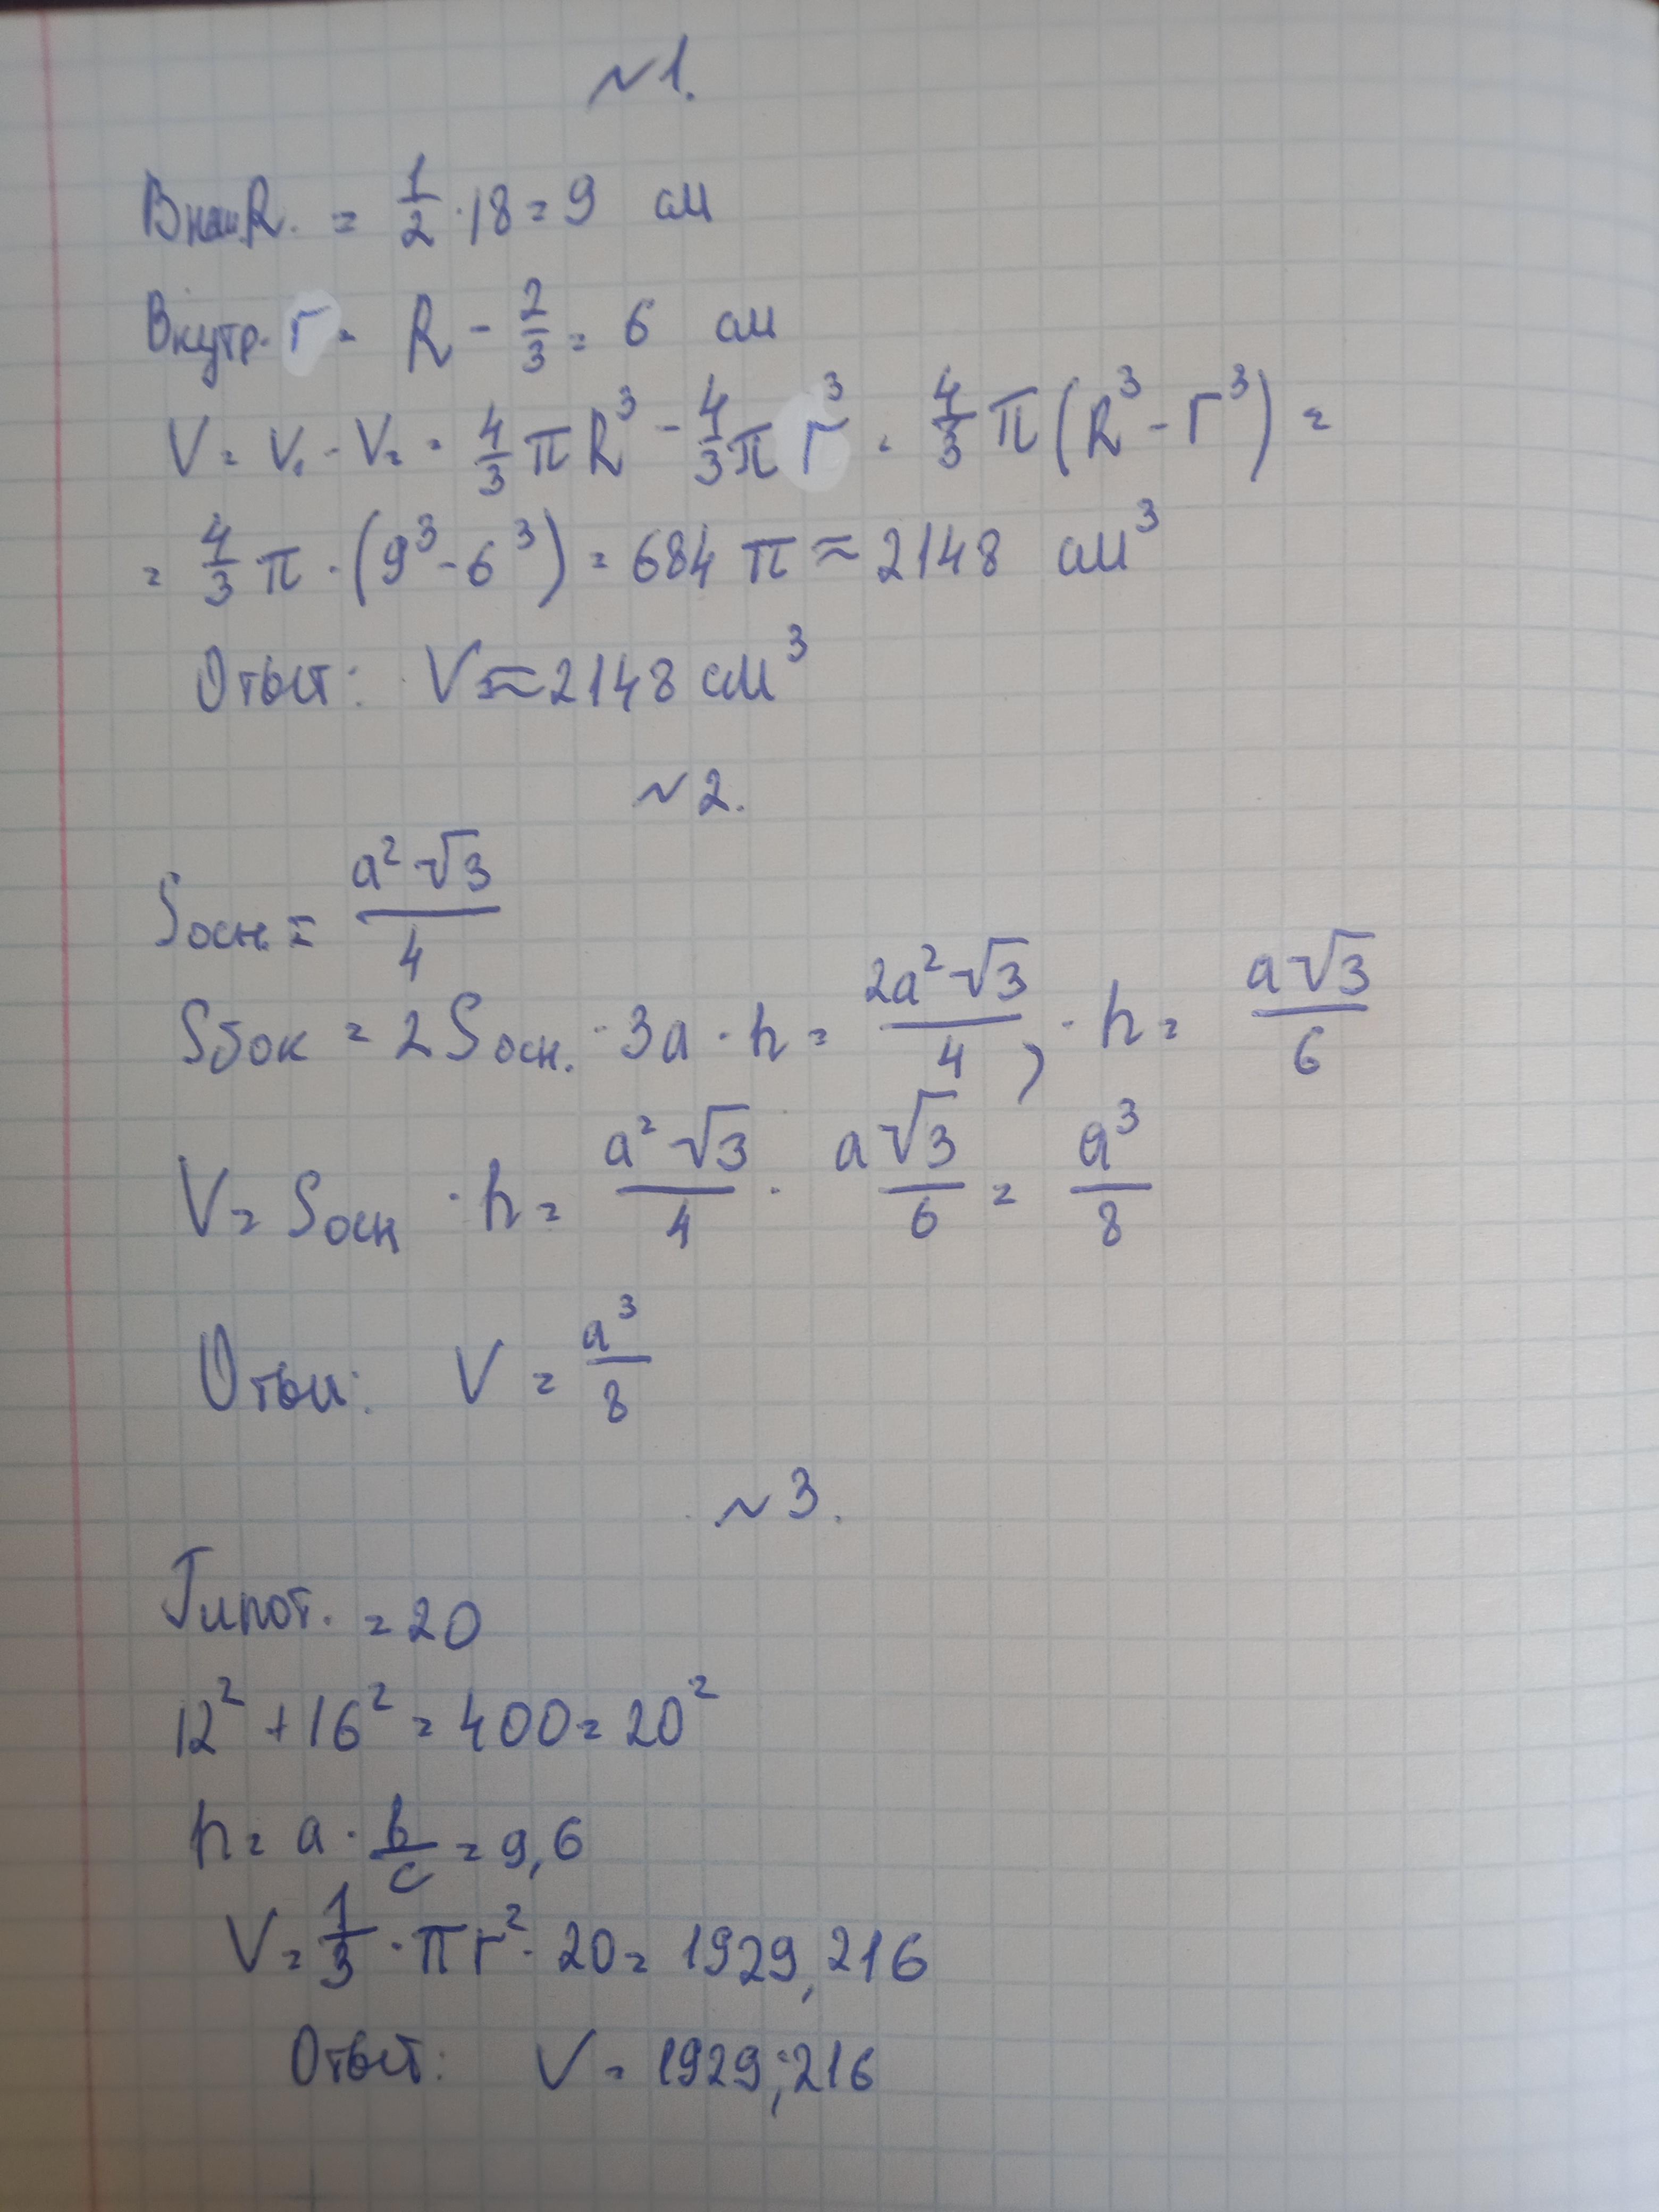 №1.
Внеш.R. = 1/2 · 18 = 9 см
Внутр. r = R - 2/3 = 6 см
V = V₁ - V₂ = 4/3 π R³ - 4/3 π r³ = 4/3 π (R³ - r³) =
= 4/3 π · (9³ - 6³) = 684 π ≈ 2148 см³
Ответ: V ≈ 2148 см³
№2.
Sосн. = a²√3/4
Sбок = 2Sосн. · 3a · h = 2a²√3/4, · h = a√3/6
V = Sосн · h = a²√3/4 · a√3/6 = a³/8
Ответ: V = a³/8
№3.
Гипот. = 20
12² + 16² = 400 = 20²
h = a · b/c = 9,6
V = 1/3 · π r² · 20 = 1929,216
Ответ: V = 1929,216